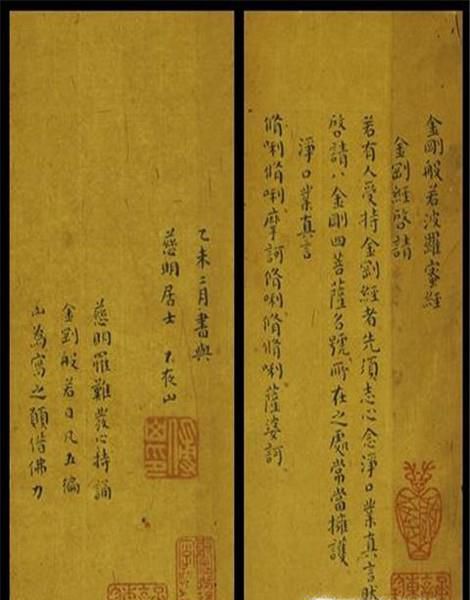 金剛般若波羅蜜經
金剛經啓請
若有人受持金剛經者先須志心念淨口業真言然
啓請八金剛四菩薩名號所在之處常當擁護
淨口業真言
脩唎脩唎摩訶脩唎脩脩唎薩婆訶
乙未二月書與
慈明居士 山
慈明罹難發心持誦
金剛般若日凡五徧
山為寫之願借佛力